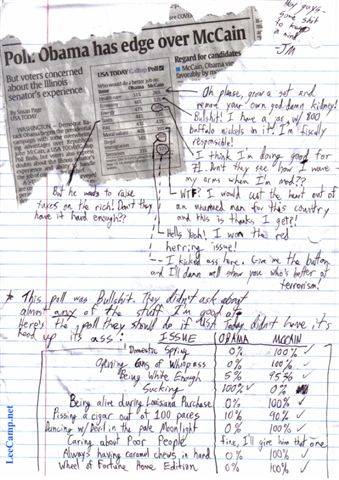 Hey guys-
some shit
JM
Poll: Obama has edge over McCain
But voters concerned
about the Illinois
senator's experience
By Susan Page
USA TODAY
WASHINGTON
USA TODAY Gallup Poll
Who would do a better job on:
Obama McCain
Regard for candidates
McCain, Obama vie
favorably by
Oh please, grow a set and
remove your own god damn kidney!
Bullshit! I have a jar w/ 800
buffalo nickels in it! I'm fiscally
responsible!
I think I'm doing good for
71. Don't they see how I move
my arms when I'm mad??
But he wants to raise
taxes on the rich! Don't they
have it hard enough??
WTF? I would cut the heart out of
an unarmed man for this country
and this is thanks I get?!
Hells Yeah! I won the red
herring issue!
I kicked ass here. Give me the button
and I'll damn well show you who's better at
terrorism!
* This poll was Bullshit. They didn't ask about
almost any of the stuff I'm good at.
Here's the poll they should do if USA Today didn't have its
head up its ass:
ISSUE OBAMA MCCAIN
Domestic Spying 0% 100% ✓
Opening Cans of Whupass 0% 100% ✓
Being White Enough 5% 95% ✓
Sucking 100% ✓ 0%
Being alive during Louisiana Purchase 0% 100% ✓
Pissing a cigar out at 100 paces 10% 90% ✓
Dancing w/ Devil in the pale Moonlight 0% 100% ✓
Caring about Poor People fine, I'll give him that one
Always having caramel chews in hand 0% 100% ✓
Wheel of Fortune Home Edition 0% 100% ✓
LeeCamp.net